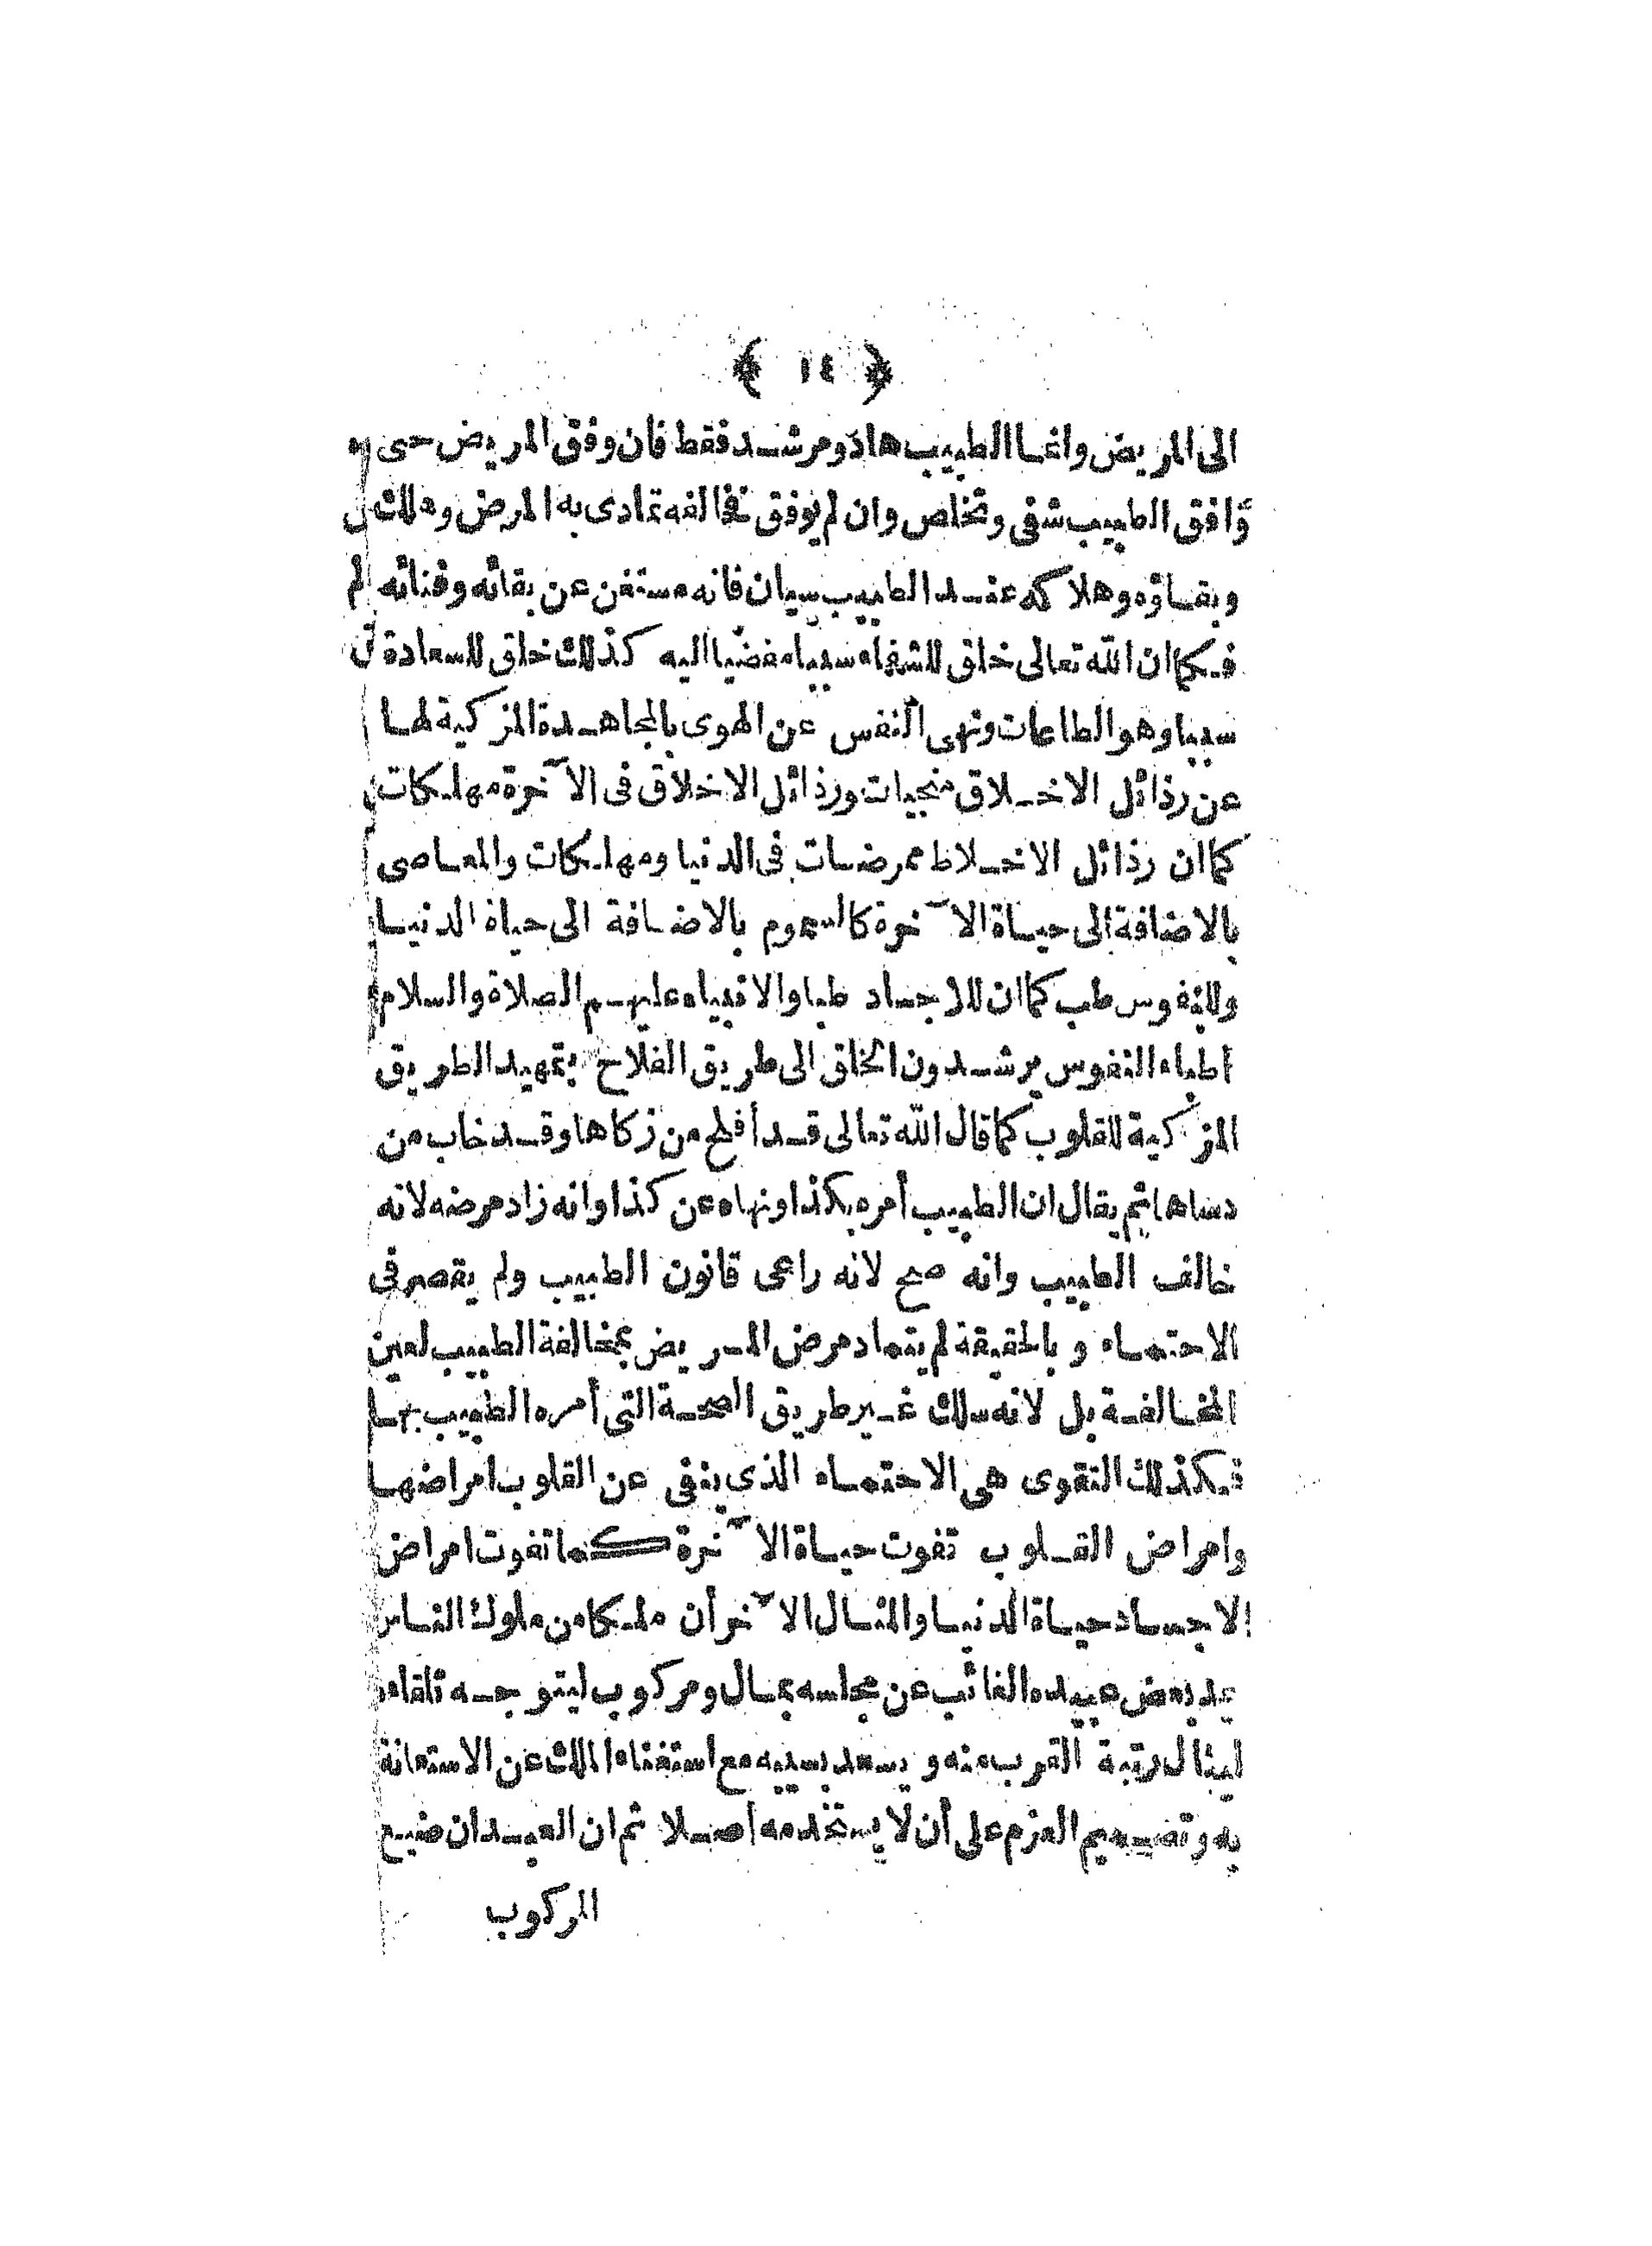 ﴿ ١٤ ﴾
الى المريض وانما الطبيب هاد ومرشد فقط فان وفق المريض حتى
وافق الطبيب شفى وتخلص وان لم يوفق فخالفه تمادى به المرض وهلك
وبقاؤه وهلاكه عند الطبيب سيان فانه مستغن عن بقائه وفنائه
فكما ان الله تعالى خلق للشفاء سببا مفضيا اليه كذلك خلق للسعادة
سببا وهو الطاعات ونهى النفس عن الهوى بالمجاهدة المزكية لها
عن رذائل الاخلاق منجيات ورذائل الاخلاق فى الآخرة مهلكات
كما ان رذائل الاخلاط ممرضات فى الدنيا ومهلكات والمعاصى
بالاضافة الى حياة الآخرة كالسموم بالاضافة الى حياة الدنيا
وللنفوس طب كما ان للاجساد طبا والانبياء عليهم الصلاة والسلام
اطباء النفوس يرشدون الخلق الى طريق الفلاح بتمهيد الطريق
المزكية للقلوب كما قال الله تعالى قد أفلح من زكاها وقد خاب من
دساها ثم يقال ان الطبيب أمره بكذا ونهاه عن كذا وانه زاد مرضه لانه
خالف الطبيب وانه صح لانه راعى قانون الطبيب ولم يقصر فى
الاحتماء وبالحقيقة لم يتماد مرض المريض بمخالفة الطبيب لعين
المخالفة بل لانه سلك غير طريق الصحة التى أمره الطبيب بها
فكذلك التقوى هى الاحتماء الذى ينفى عن القلوب امراضها
وامراض القلوب تفوت حياة الآخرة كما تفوت امراض
الاجساد حياة الدنيا والمثال الآخر أن ملكا من ملوك الناس
يمد بعض عبيده الغائب عن مجلسه بمال ومركوب ليتوجه تلقاءه
لينال رتبة القرب منه ويسعد بسببه مع استغناء الملك عن الاستعانة
به وتصميم العزم على أن لا يستخدمه أصلا ثم ان العبد ان ضيع
المركوب